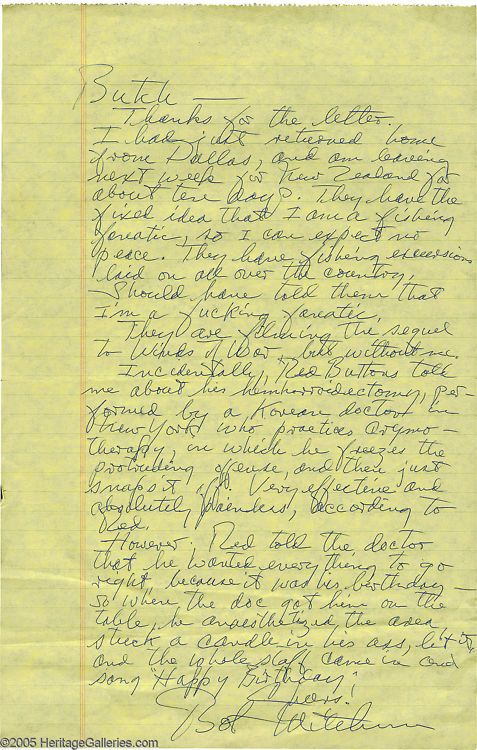 Butch —
Thanks for the letter.
I had just returned home
from Dallas, and am leaving
next week for New Zealand for
about ten days. They have the
fixed idea that I am a fishing
fanatic, so I can expect no
peace. They have fishing excursions
laid on all over the country.
Should have told them that
I'm a fucking fanatic.
They are filming the sequel
to Winds of War, but without me.
Incidentally, Red Buttons told
me about his hemhorroidectomy, per-
formed by a Korean doctor in
New York who practices Crymo-
therapy, in which he freezes the
protruding offense, and then just
snaps it off. Very effective and
absolutely painless, according to
Red.
However, Red told the doctor
that he wanted everything to go
right, because it was his birthday —
so when the doc got him on the
table, he anaesthetized the area,
stuck a candle in his ass, lit it,
and the whole staff came in and
song "Happy Birthday".
Yours!
Bob Mitchum
©2005 HeritageGalleries.com